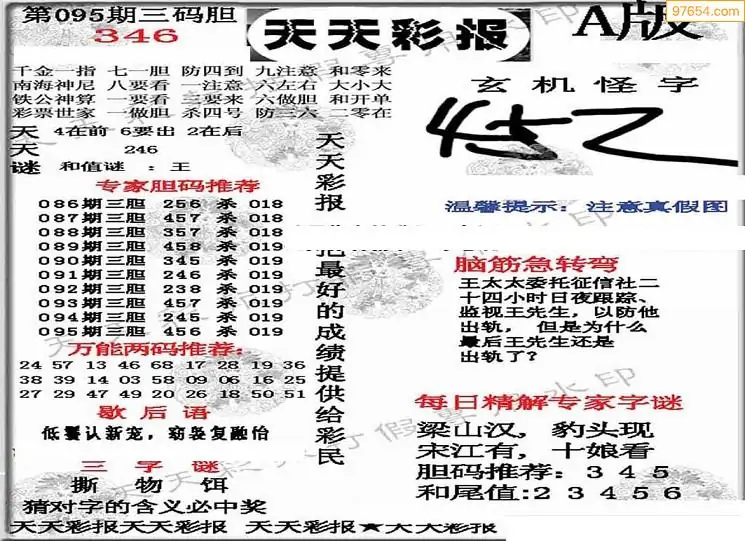 第095期三码胆
346
天天彩报
A版
97654.com
千金一指 七一胆 防四到 九注意 和零来
南海神尼 八要看 一注意 六左右 大小大
铁公神算 一要看 三要来 六做胆 和开单
彩票世家 一做胆 杀四号 防三六 二零在
天 4在前 6要出 2在后
天 246
谜 和值谜：王
玄机怪字
452
温馨提示：注意真假图
专家胆码推荐
086期三胆 256 杀 018
087期三胆 457 杀 018
088期三胆 357 杀 018
089期三胆 458 杀 019
090期三胆 345 杀 019
091期三胆 246 杀 019
092期三胆 238 杀 019
093期三胆 457 杀 019
094期三胆 245 杀 019
095期三胆 456 杀 019
万能两码推荐：
24 57 13 46 68 17 28 19 36
38 39 14 03 58 09 06 16 25
27 29 47 49 20 26 18 50 51
歇后语
低鬟认新宠，窈袅复融怡
三字谜
撕 物 饵
猜对字的含义必中奖
天天彩报
把最好的成绩提供给彩民
脑筋急转弯
王太太委托征信社二
十四小时日夜跟踪、
监视王先生，以防他
出轨， 但是为什么
最后王先生还是
出轨了？
每日精解专家字谜
梁山汉，豹头现
宋江有，十娘看
胆码推荐：3 4 5
和尾值:2 3 4 5 6
天天彩报天天彩报 天天彩报★天天彩报